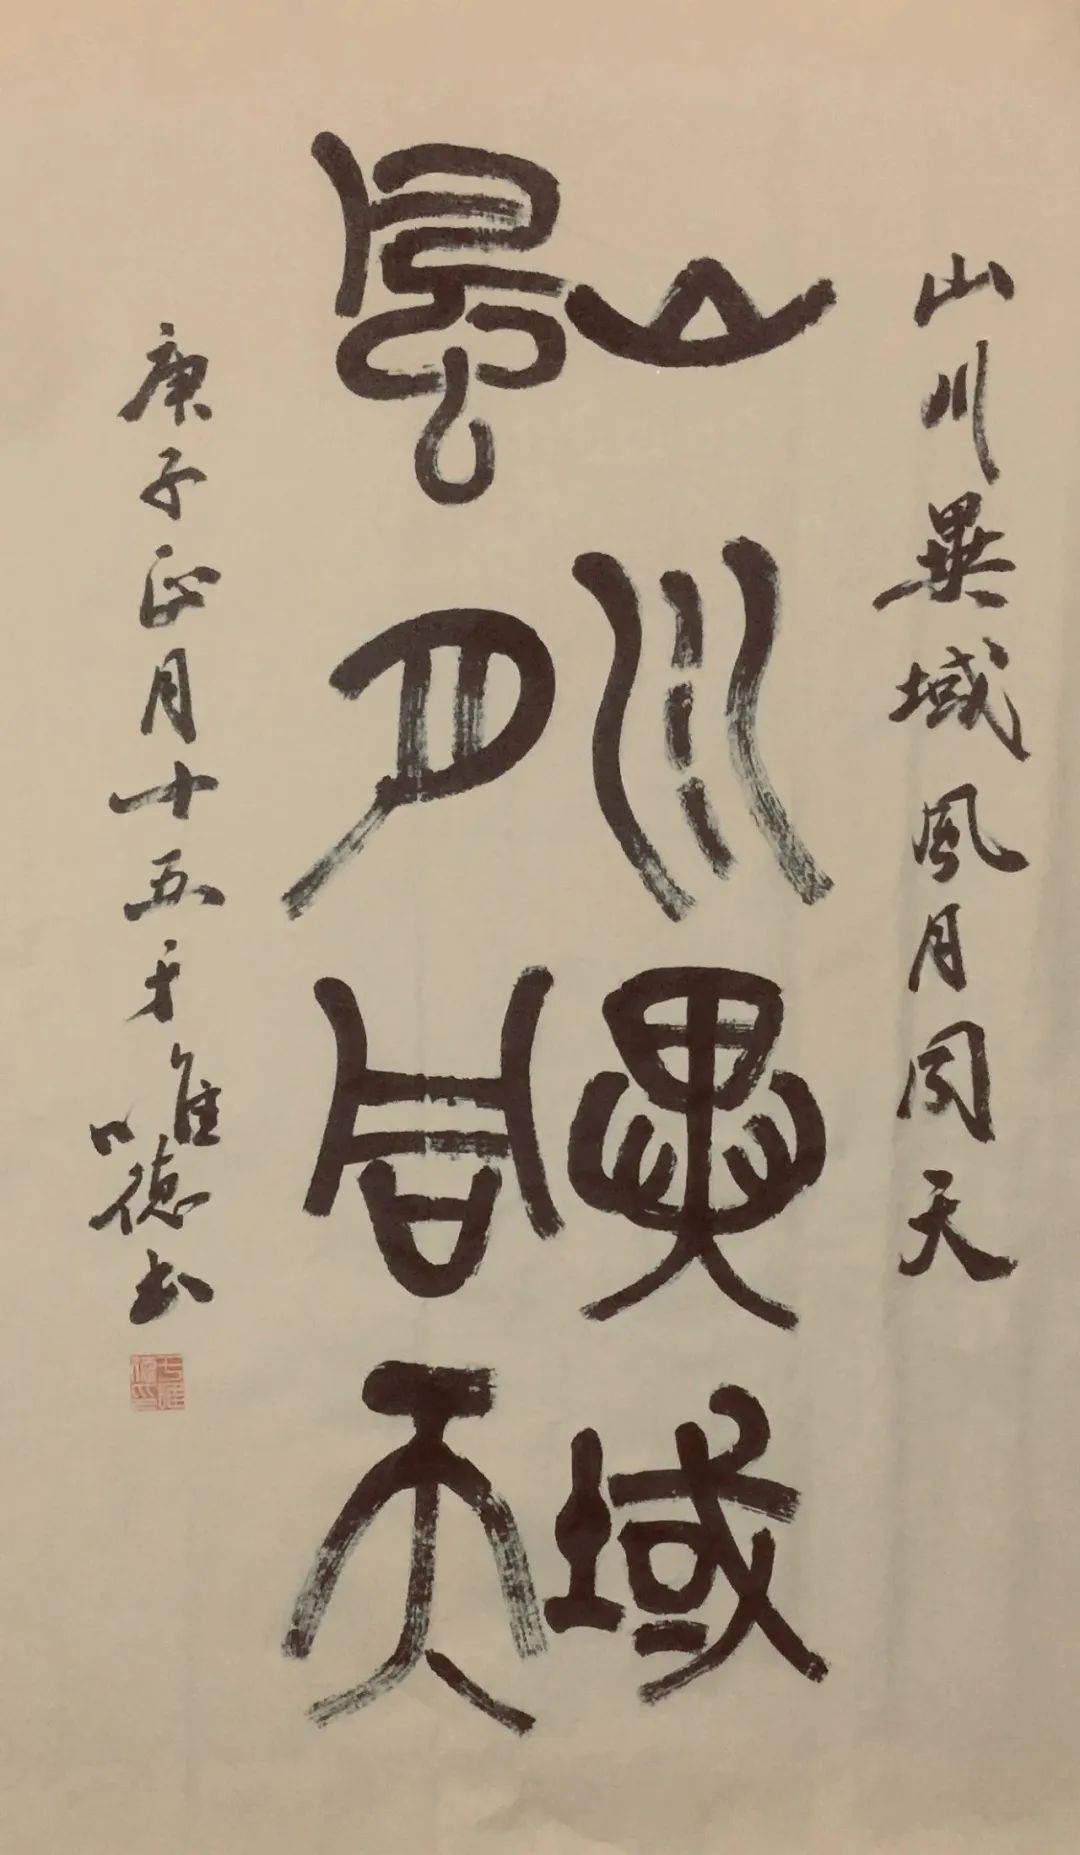 山川異域風月同天
山川異域
風月同天
庚子正月十五唯德书